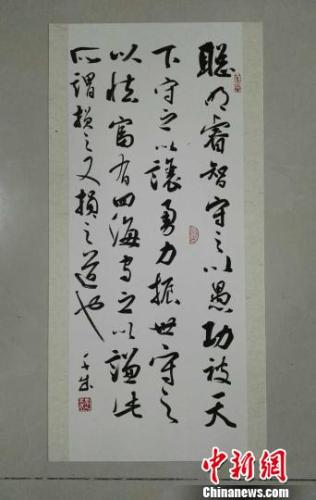 聰明睿智守之以愚功被天
下守之以讓勇力振世守之
以怯富有四海守之以謙此
所謂損之又損之道也
中新網
www.chinanews.com